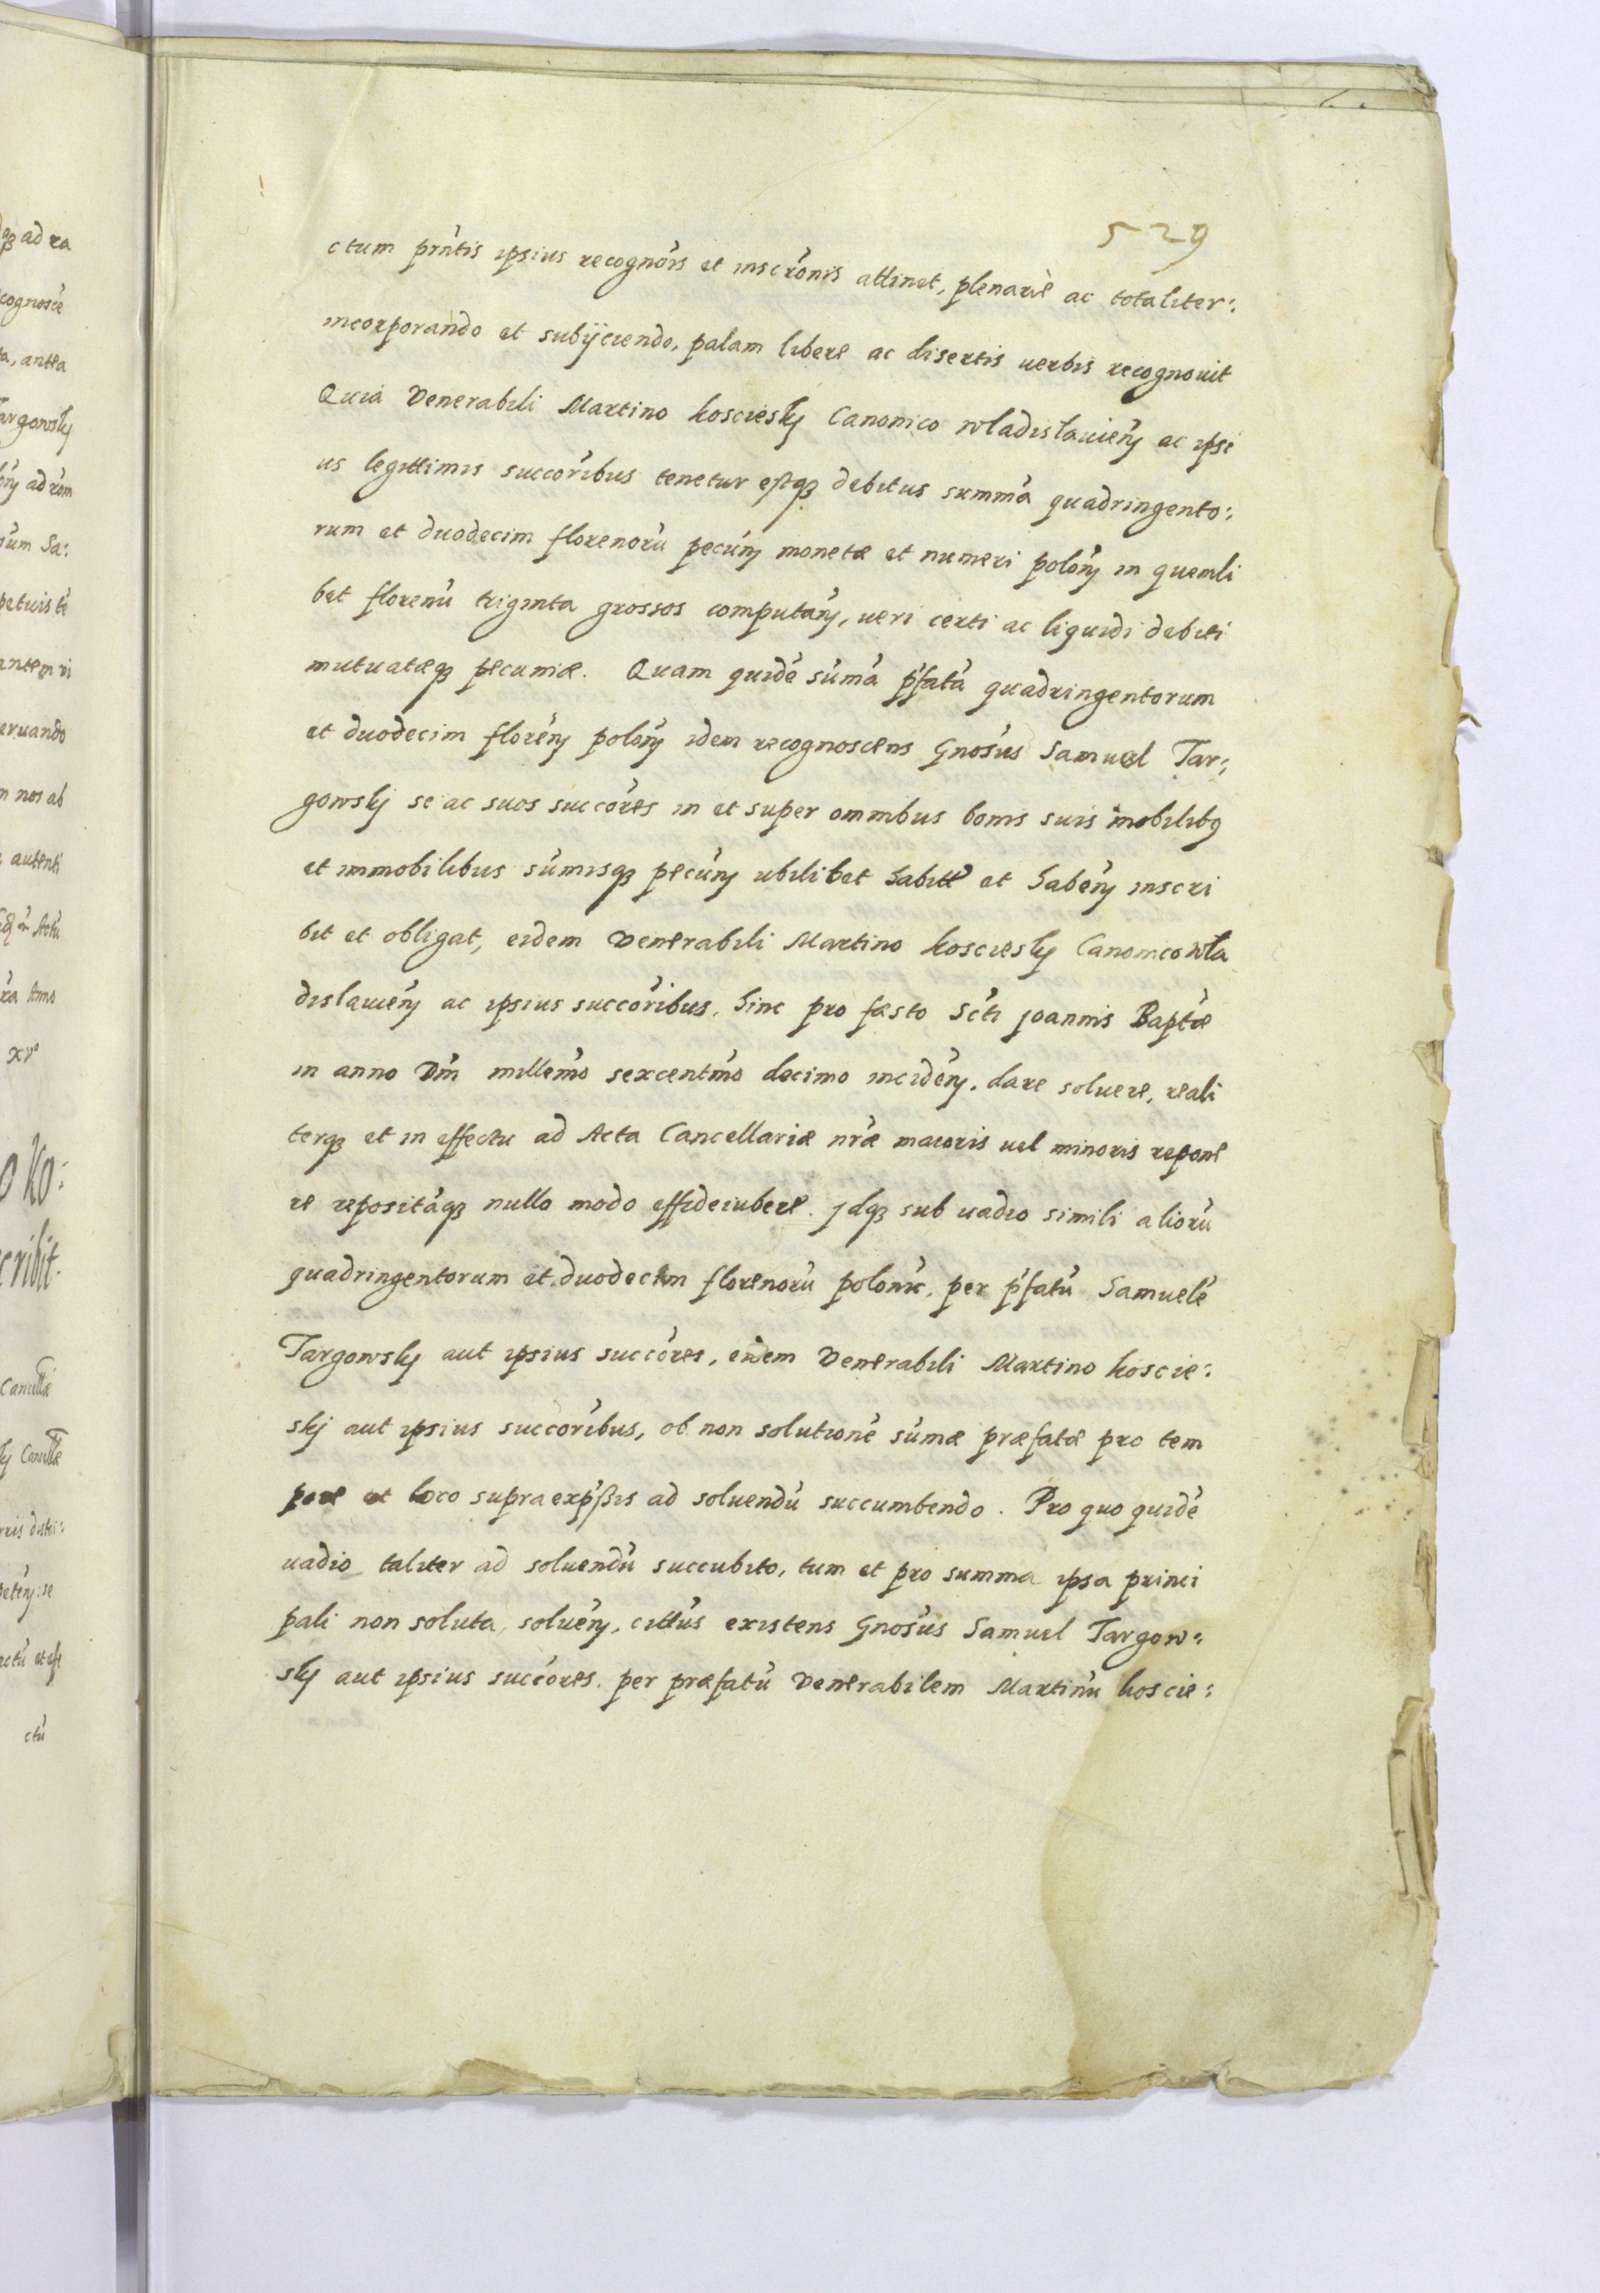 529
ctum prn̄tis ipsius recognōis et inscrōnis attinet, plenarie ac totaliter:
incorporando et subijciendo, palam libere ac disertis verbis recognouit
Quia Venerabili Martino Koscieskj Canonico Wladislauien̄ ac ipsi
us legittimis succorībus tenetur estqȝ debitus summā quadringento:
rum et duodecim florenorū pecun̄ monetæ et numeri polon̄ in quemli
bet florenū triginta grossos computan̄, ueri certi ac liquidi debiti
mutuatæqȝ pecuniæ. Quam quidē sūmā p̄fatā quadringentorum
et duodecim floren̄ polon̄ idem recognoscens Gnosūs Samuel Tar:
gowskj se ac suos succōres in et super omnibus bonis suis mobilibȝ
et immobilibus sūmisqȝ pecun̄ ubilibet habitꝭ et haben̄ inscri
bit et obligat, eidem Venerabili Martino Koscieskj Canonico Wla
dislauien̄ ac ipsius succorībus, hinc pro festo Scti Joannis Baptæ
in anno Dm̄ millemo sexcentmo decimo inciden̄, dare soluere, reali
terqȝ et in effectu ad Acta Cancellariæ nrǣ maioris uel minoris repone
re repositāqȝ nullo modo effideiubere. Jdqȝ sub uadio simili aliorū
quadringentorum et duodecim florenorū polonic, per p̄fatū Samuelē
Targowskj aut ipsius succōres, eidem Venerabili Martino Koscie:
skj aut ipsius succorībus, ob non solutionē sūmæ præfatæ pro tem
pore et loco supraexp̄ssis ad soluendū succumbendo. Pro quo quidē
uadio taliter ad soluendū succubito, tum et pro summa ipsa princi
pali non soluta, soluen̄, citt̄us existens Gnosūs Samuel Targow:
skj aut ipsius succōres per præfatū Venerabilem Martinū Koscie: